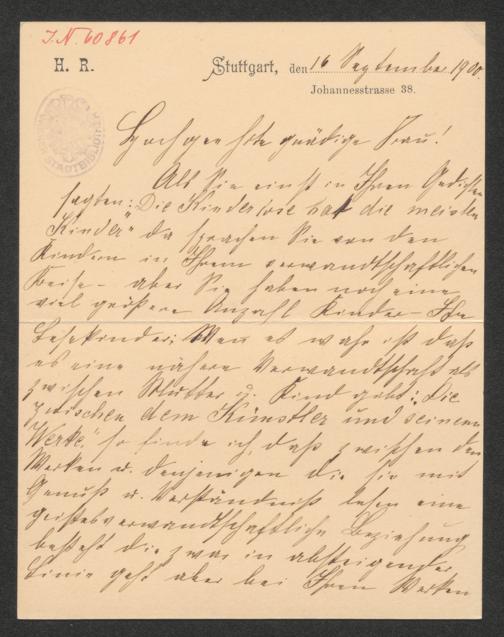 I.N. 60861
H. R.
Stuttgart, den 16 September 1900.
Johannesstrasse 38.
Hochgeehrte gnädige Frau!
Als Sie einst in Ihren Gedichten
sagten: „Die Kinderlose hat die meisten
Kinder" da sprachen Sie von den
Kindern in Ihrem verwandtschaftlichen
Kreise – aber Sie haben noch eine
viel größere Anzahl Kinder – Ihre
Lesekinder; Wenn es wahr ist daß
es eine nähere Verwandtschaft als
zwischen Mutter u. Kind gibt: „Die
zwischen dem Künstler und seinem
Werke," so finde ich, daß zwischen den
Werken u. denjenigen die sie mit
Genuß u. Verständniß lesen eine
geistesverwandtschaftliche Beziehung
besteht die zwar in absteigender
Linie geht aber bei Ihren Werken